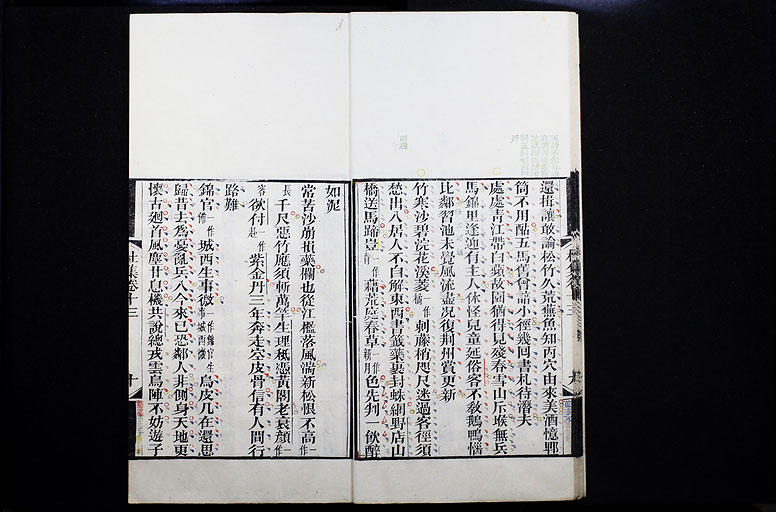 還揖讓敢論松竹久荒蕪魚知丙穴由來美酒憶郫
筒不用酤五馬舊曾諳小徑幾回書札待潛夫
處處青江帶白蘋故園猶得見殘春雪山斥堠無兵
馬錦里逢迎有主人休怪兒童延俗客不教鵝鴨惱
比鄰習池未覺風流盡况復荆州賞更新
竹寒沙碧浣花溪菱一作橘刺藤梢咫尺迷過客徑須
愁出入居人不自解東西書籤藥裹封蛛網野店山
橋送馬蹄豈藉荒庭春草一作色先判一飲醉
如泥
常苦沙崩損藥欄也從江檻落風湍新松恨不高一作
長千尺惡竹應須斬萬竿生理秪憑黃閣老衰顏一作
容欲付一作赴紫金丹三年奔走空皮骨信有人間行
路難
錦官城西生事微烏皮几在還思
歸昔去為憂亂兵入今來已恐鄰人非側身天地更
懷古廻首風塵甘息機共說總戎雲鳥陣不妨遊子
杜集卷十三
十